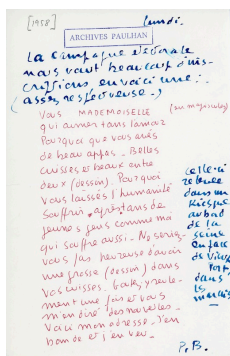 [1958]
lundi.
ARCHIVES PAULHAN
La campagne électorale
nous vaut beaucoup d'ins-
criptions en voici une :
(assez respectueuse.)
Vous MADEMOISELLE (en majuscules)
qui aimer tans lamoz
Pourquoi que vous avés
de beau appas. Belles
cuisses et beaux autre
deux (dessin). Pourquoi
vous laissés l'humanité
souffrir après tans de
jeunes gens comme moi
qui souffre aussi. No seriez-
vous pas heureuse d'avoir
une grosse (dessin) dans
vos cuisses. seule-
ment une fois et vous
m'en diré des nouvelles.
Voici mon adresse. J'en
bande et j'en veu.
celle-ci
relevée
dans un
Kiosque
au bord
de la
seine
en face
de Vieux
Port,
dans
les
marais
P.B.